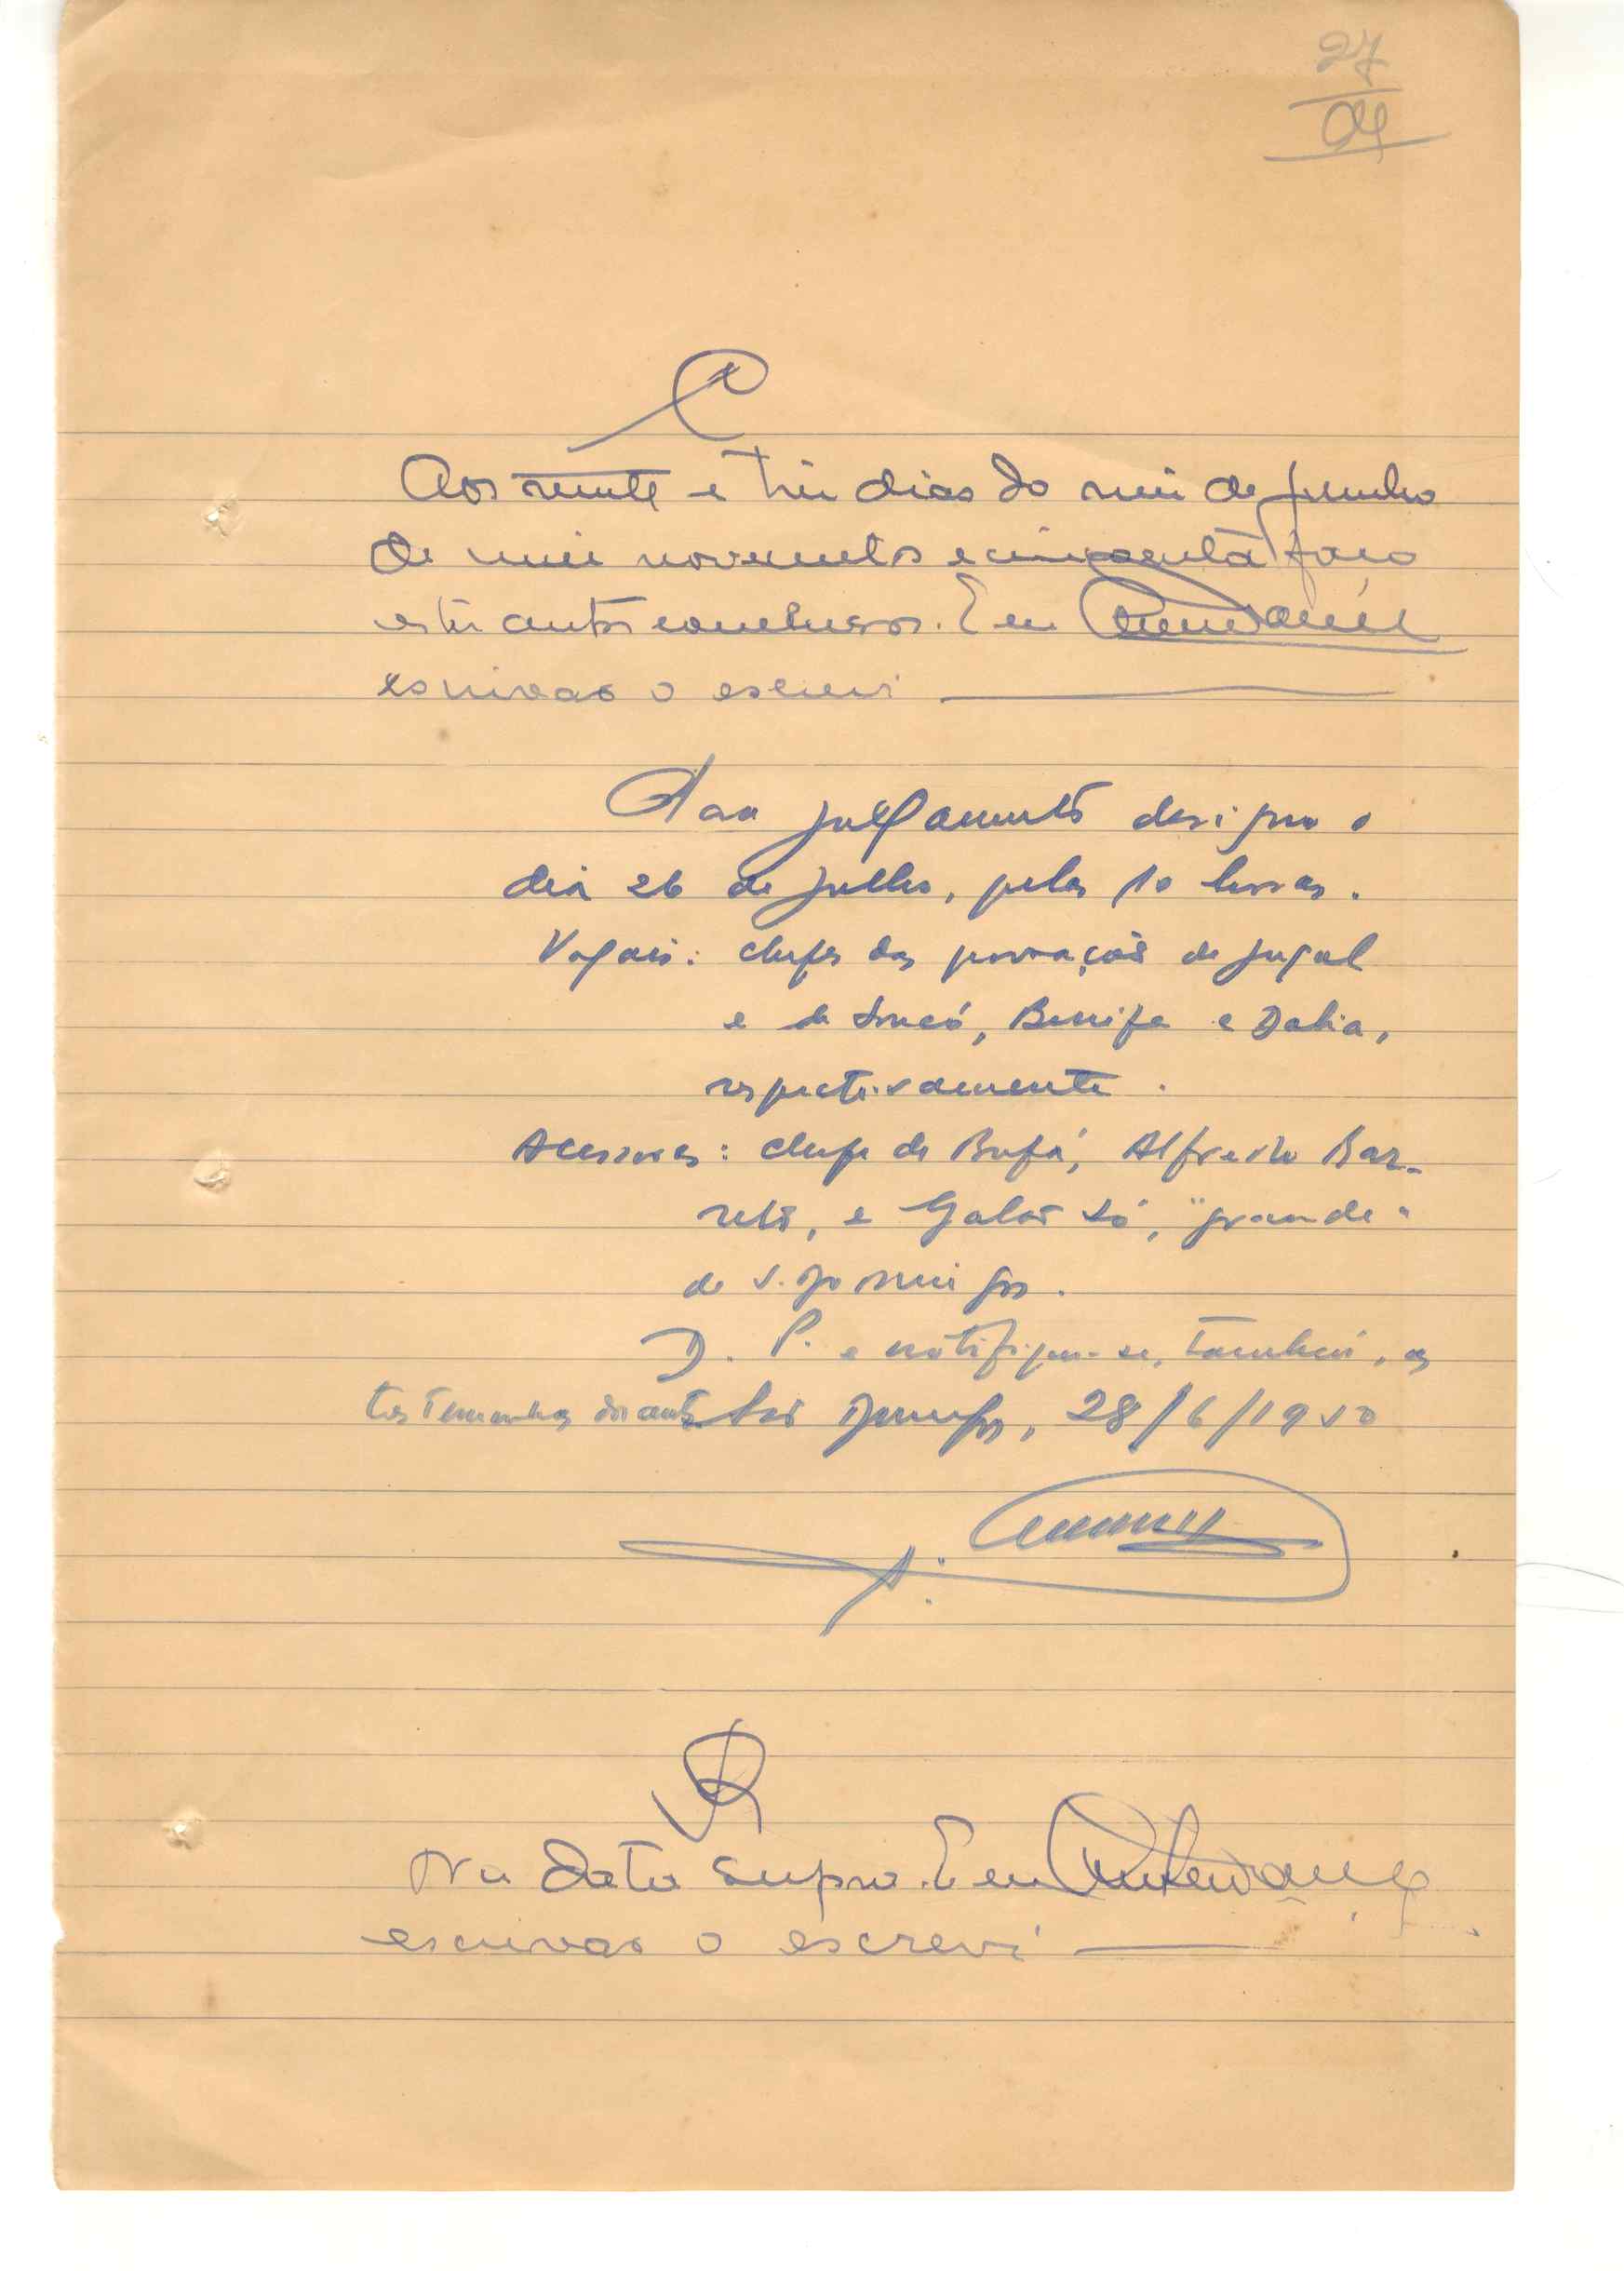 27
04
C
Aos vinte e três dias do mês de Junho
de mil novecentos e cincoenta faço
estes autos conclusos. Eu
escrivão o escrevi
Para julgamento designo o
dia 26 de Julho, pelas 10 horas.
Vogais: chefes das povoações de Jugal
e de Soncó, Benife e Dabia,
respectivamente.
Acessores: chefe de Bufá, Alfredo Bar-
reto, e Galas Só, "grande"
de S. Domingos.
D. P. e notifique-se, também, as
testemunhas dos autos São Domingos, 28/6/1950
R
Na data supra. Eu
escrivão o escrevi